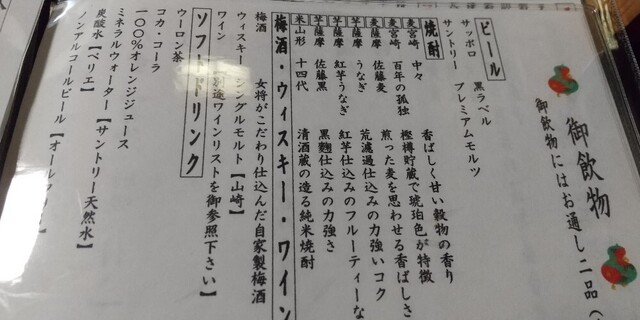 御飲物
御飲物にはお通し二品
ビール
サッポロ 黒ラベル
サントリー プレミアムモルツ
焼酎
麦 宮崎 中々 香ばしく甘い穀物の香り
麦 宮崎 百年の孤独 樫樽貯蔵で琥珀色が特徴
麦 薩摩 佐藤麦 煎った麦を思わせる香ばしさ
芋 薩摩 うなぎ 荒濾過仕込みの力強いコク
芋 薩摩 紅芋うなぎ 紅芋仕込みのフルーティーな
芋 薩摩 佐藤黒 黒麹仕込みの力強さ
米 山形 十四代 清酒蔵の造る純米焼酎
梅酒・ウィスキー・ワイン
梅酒 女将がこだわり仕込んだ自家製梅酒
ウィスキー シングルモルト【山崎】
ワイン 別途ワインリストを御参照下さい】
ソフトドリンク
ウーロン茶
コカ・コーラ
100%オレンジジュース
ミネラルウォーター【サントリー天然水】
炭酸水【ペリエ】
ノンアルコールビール【オール